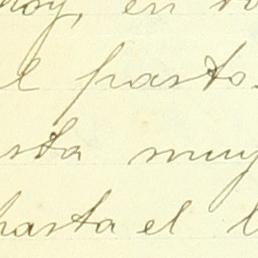 hoy, en
el pasto.
sta muy
hasta el l